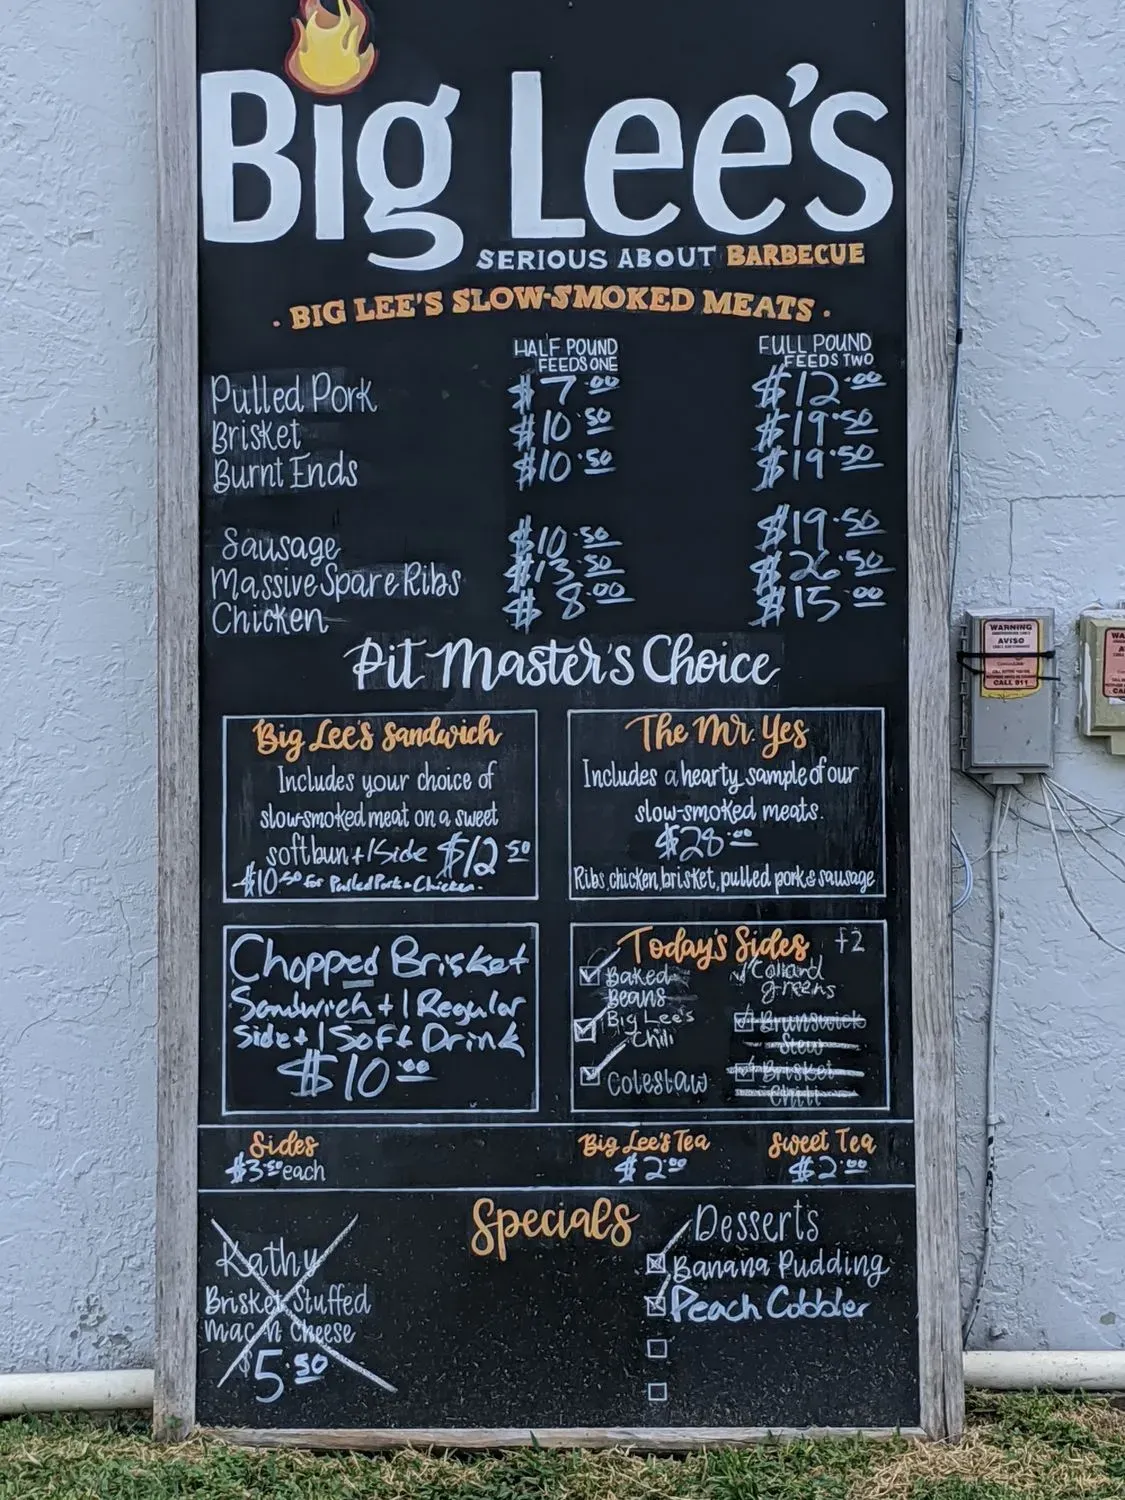 Big Lee's
SERIOUS ABOUT BARBECUE
· BIG LEE'S SLOW-SMOKED MEATS ·
HALF POUND
FEEDS ONE
FULL POUND
FEEDS TWO
Pulled Pork $7.00 $12.00
Brisket $10.50 $19.50
Burnt Ends $10.50 $19.50
Sausage $10.50 $19.50
Massive Spare Ribs $13.50 $26.50
Chicken $8.00 $15.00
Pit Master's Choice
Big Lee's Sandwich
Includes your choice of
slow-smoked meat on a sweet
soft bun + 1 Side $12.50
$10.50 for Pulled Pork & Chicken.
The Mr. Yes
Includes a hearty sample of our
slow-smoked meats.
$28.00
Ribs, chicken, brisket, pulled pork & sausage
Chopped Brisket
Sandwich + 1 Regular
Side + 1 Soft Drink
$10.00
Today's Sides
Baked
Beans
Big Lee's
Chili
Coleslaw
Collard
greens
Brunswick
Stew
Brisket
Chili
Sides
$3.50 each
Big Lee's Tea
$2.00
Sweet Tea
$2.00
Specials
Kathy
Brisket Stuffed
Mac N Cheese
$5.50
Desserts
Banana Pudding
Peach Cobbler
WARNING
AVISO
CALL 811